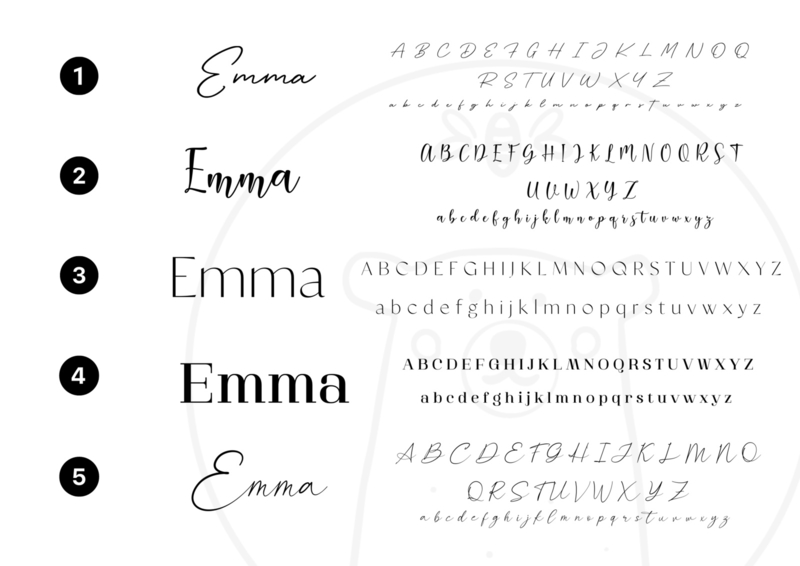 1
Emma
A B C D E F G H I J K L M N O Q
R S T U V W X Y Z
a b c d e f g h i j k l m n o p q r s t u v w x y z
2
Emma
A B C D E F G H I J K L M N O Q R S T
U V W X Y Z
a b c d e f g h i j k l m n o p q r s t u v w x y z
3
Emma
A B C D E F G H I J K L M N O Q R S T U V W X Y Z
a b c d e f g h i j k l m n o p q r s t u v w x y z
4
Emma
A B C D E F G H I J K L M N O Q R S T U V W X Y Z
a b c d e f g h i j k l m n o p q r s t u v w x y z
5
Emma
A B C D E F G H I J K L M N O
Q R S T U V W X Y Z
a b c d e f g h i j k l m n o p q r s t u v w x y z